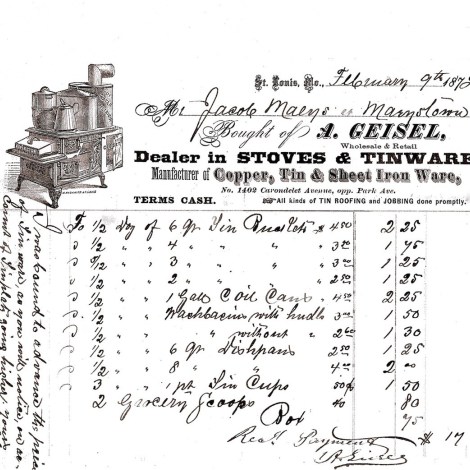 St. Louis, Mo., February 9th 187
Mr. Jacob Maeys
Bought of A. GEISEL,
Wholesale & Retail
Dealer in STOVES & TINWARE
Manufacturer of Copper, Tin & Sheet Iron Ware,
No. 1402 Carondelet Avenue, opp. Park Ave.
TERMS CASH. All kinds of TIN ROOFING and JOBBING done promptly.
To 1/2 Doz of 6 Qr Tin Buckets @ 4 50 2 25
1/2 " " 4 " " " 3 50 1 75
1/2 " " 3 " " " 1 25
1/2 " " 2 " " " 2 00 1
1/2 " " 1 Gall Oil Cans " 4 50 2 25
1/2 " " Washbasins with hndls " 3 00 1 50
1/2 " " " without " 2 60 1 30
1/2 " " 6 Qr Dishpans " 2 50 1 25
1/2 " " 8 " " " 4 2 00
3 " 1 pt Tin Cups 50 1 50
2 Grocery Scoops 40 80
Box 75
Recd Payment $ 17
A. Geisel
I was bound to advance the price
of Tin ware, as you will notice, on